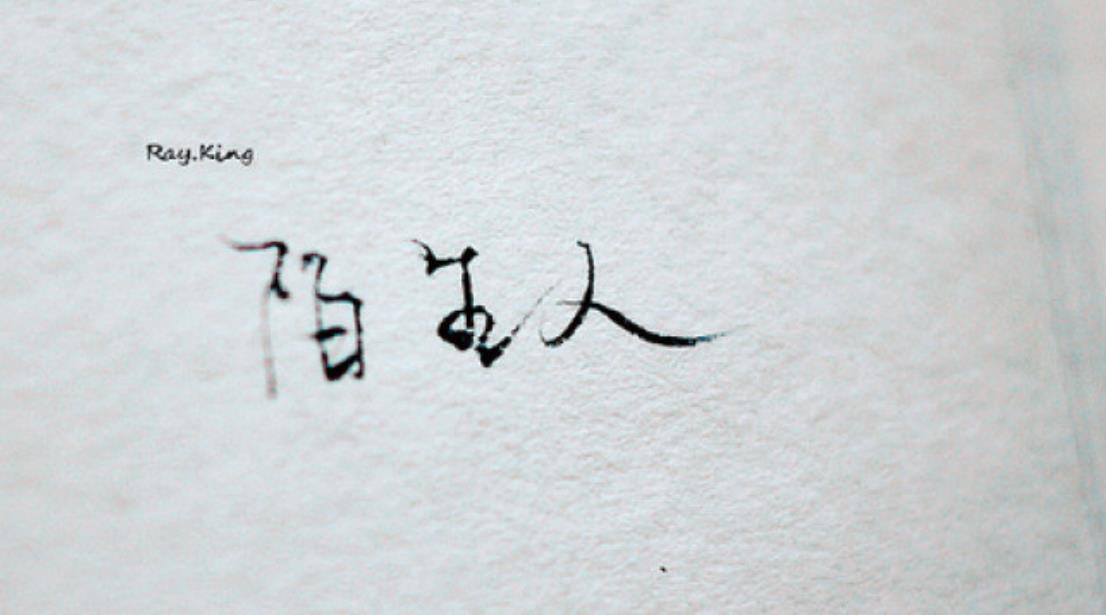 Ray.King
陌生人